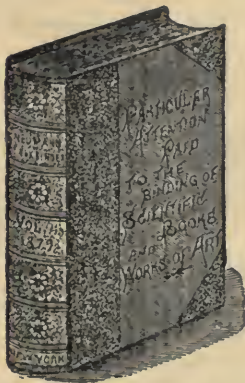 PARTICULAR
ATTENTION
PAID
TO THE
BINDING OF
SCIENTIFIC
BOOKS
AND
WORKS OF ART
1879
NEW YORK